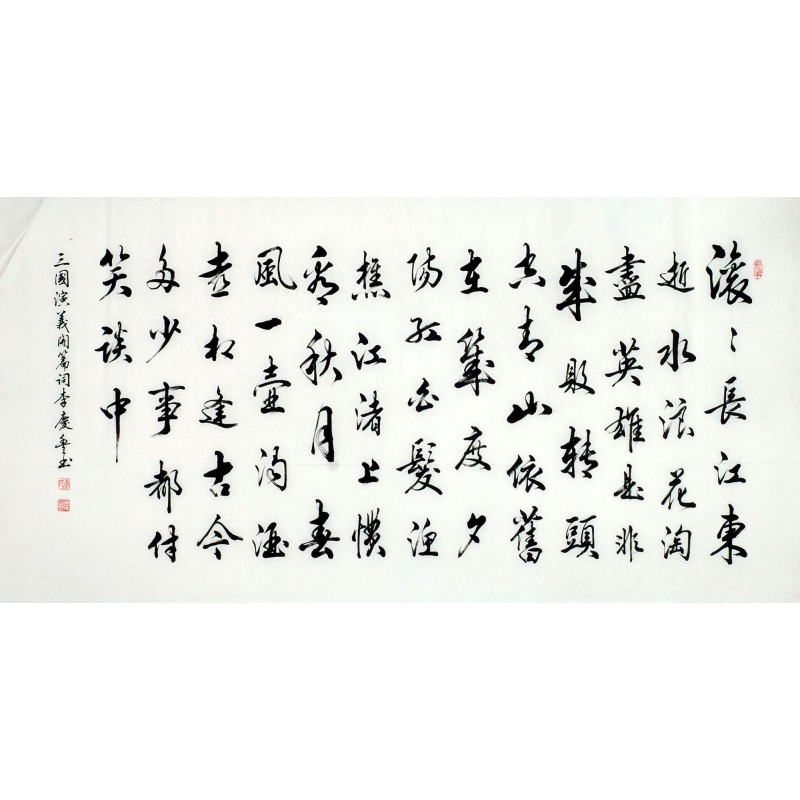 滾〻長江東
逝水浪花淘
盡英雄是非
成敗转頭
空青山依舊
在幾度夕
陽紅白髮漁
樵江渚上慣
看秋月春
風一壺濁酒
喜相逢古今
多少事都付
笑談中
三國演義開篇词李慶豐书